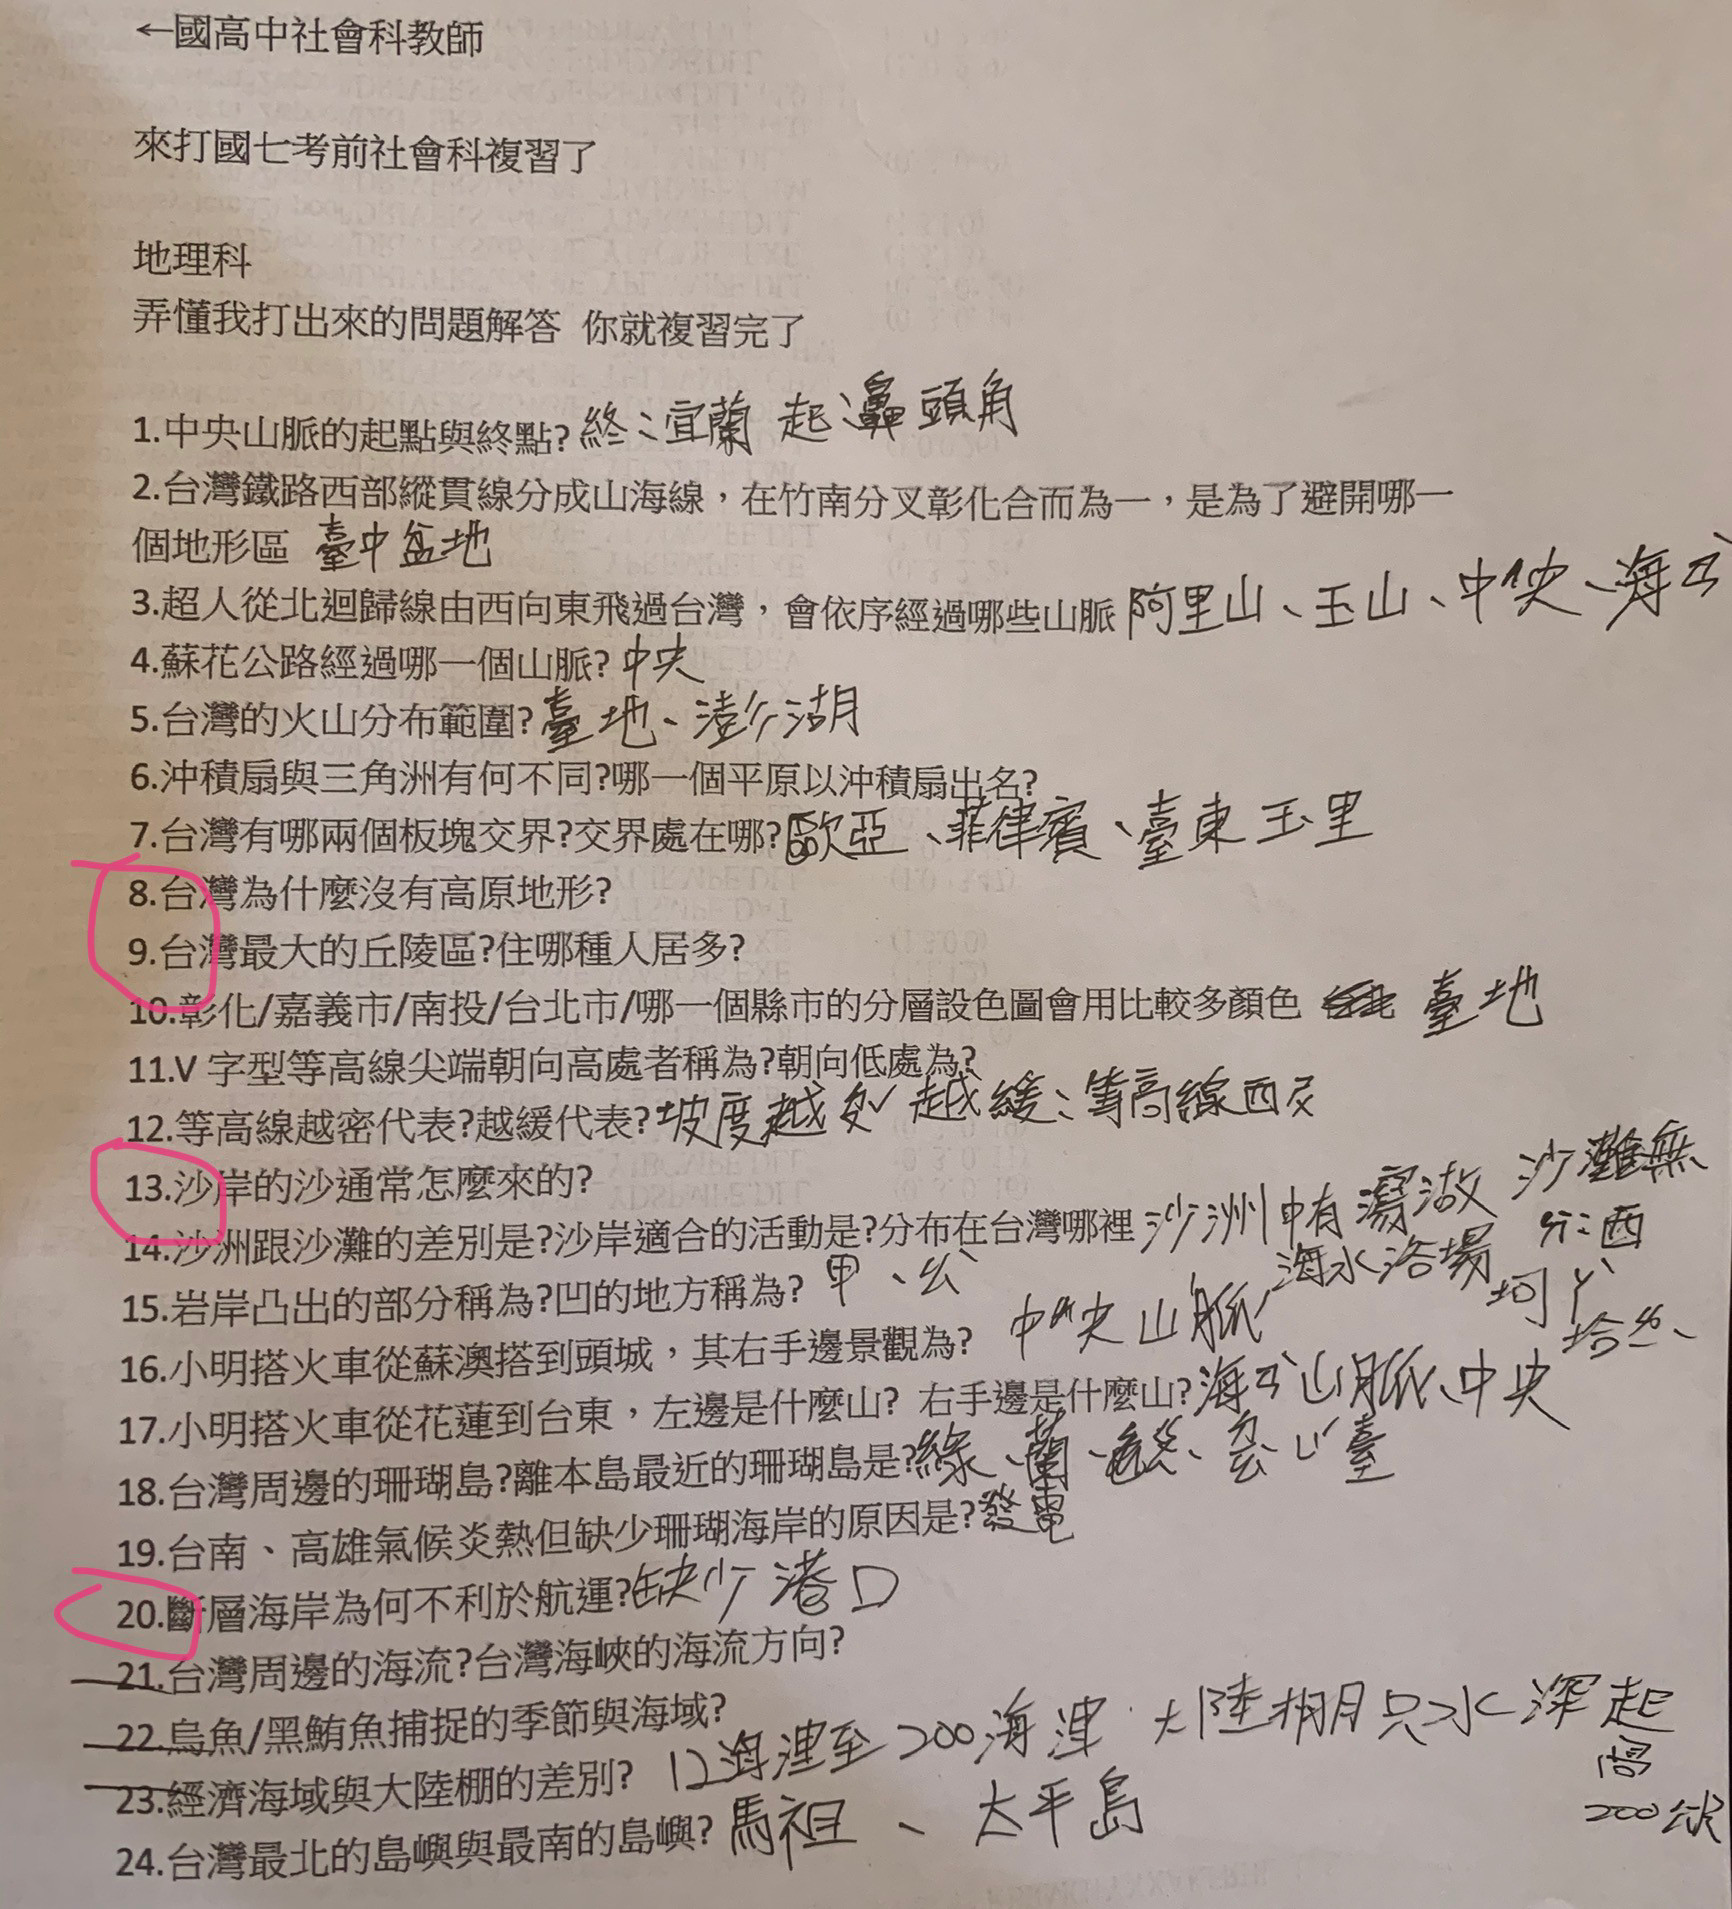 ←國高中社會科教師
來打國七考前社會科複習了
地理科
弄懂我打出來的問題解答 你就複習完了
1.中央山脈的起點與終點? 終:宜蘭 起:鼻頭角
2.台灣鐵路西部縱貫線分成山海線，在竹南分叉彰化合而為一，是為了避開哪一
個地形區 臺中盆地
3.超人從北迴歸線由西向東飛過台灣，會依序經過哪些山脈 阿里山、玉山、中央、海ㄢˋ
4.蘇花公路經過哪一個山脈? 中央
5.台灣的火山分布範圍? 臺地、澎湖
6.沖積扇與三角洲有何不同?哪一個平原以沖積扇出名?
7.台灣有哪兩個板塊交界?交界處在哪? 歐亞、菲律賓、臺東玉里
8.台灣為什麼沒有高原地形?
9.台灣最大的丘陵區?住哪種人居多?
10.彰化/嘉義市/南投/台北市/哪一個縣市的分層設色圖會用比較多顏色 臺地
11.V 字型等高線尖端朝向高處者稱為?朝向低處為?
12.等高線越密代表?越緩代表? 坡度越 越緩:等高線
13.沙岸的沙通常怎麼來的?
14.沙洲跟沙灘的差別是?沙岸適合的活動是?分布在台灣哪裡 沙洲中有 沙灘無
海水浴場 西
15.岩岸凸出的部分稱為?凹的地方稱為? 甲、
16.小明搭火車從蘇澳搭到頭城，其右手邊景觀為? 中央山脈
17.小明搭火車從花蓮到台東，左邊是什麼山? 右手邊是什麼山? 海ㄢˋ山脈、中央
18.台灣周邊的珊瑚島?離本島最近的珊瑚島是? 綠、蘭、
19.台南、高雄氣候炎熱但缺少珊瑚海岸的原因是? 發電
20.斷層海岸為何不利於航運? 缺少港口
21.台灣周邊的海流?台灣海峽的海流方向?
22.烏魚/黑鮪魚捕捉的季節與海域?
23.經濟海域與大陸棚的差別? 12海浬至200海浬 大陸棚只水深起
200
24.台灣最北的島嶼與最南的島嶼? 馬祖、太平島